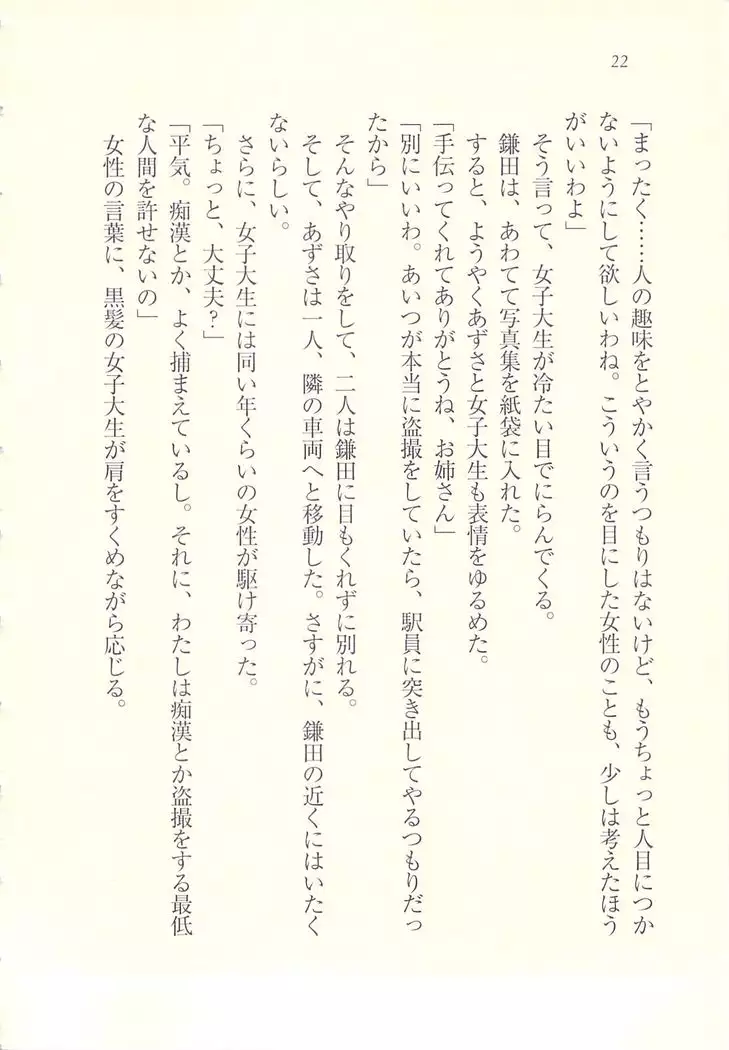 22
「まったく……人の趣味をとやかく言うつもりはないけど、もうちょっと人目につか
ないようにして欲しいわね。こういうのを目にした女性のことも、少しは考えたほう
がいいわよ」
そう言って、女子大生が冷たい目でにらんでくる。
鎌田は、あわてて写真集を紙袋に入れた。
すると、ようやくあずさと女子大生も表情をゆるめた。
「手伝ってくれてありがとうね、お姉さん」
「別にいいわ。あいつが本当に盗撮をしていたら、駅員に突き出してやるつもりだっ
たから」
そんなやり取りをして、二人は鎌田に目もくれずに別れる。
そして、あずさは一人、隣の車両へと移動した。さすがに、鎌田の近くにはいたく
ないらしい。
さらに、女子大生には同い年くらいの女性が駆け寄った。
「ちょっと、大丈夫？」
「平気。痴漢とか、よく捕まえているし。それに、わたしは痴漢とか盗撮をする最低
な人間を許せないの」
女性の言葉に、黒髪の女子大生が肩をすくめながら応じる。